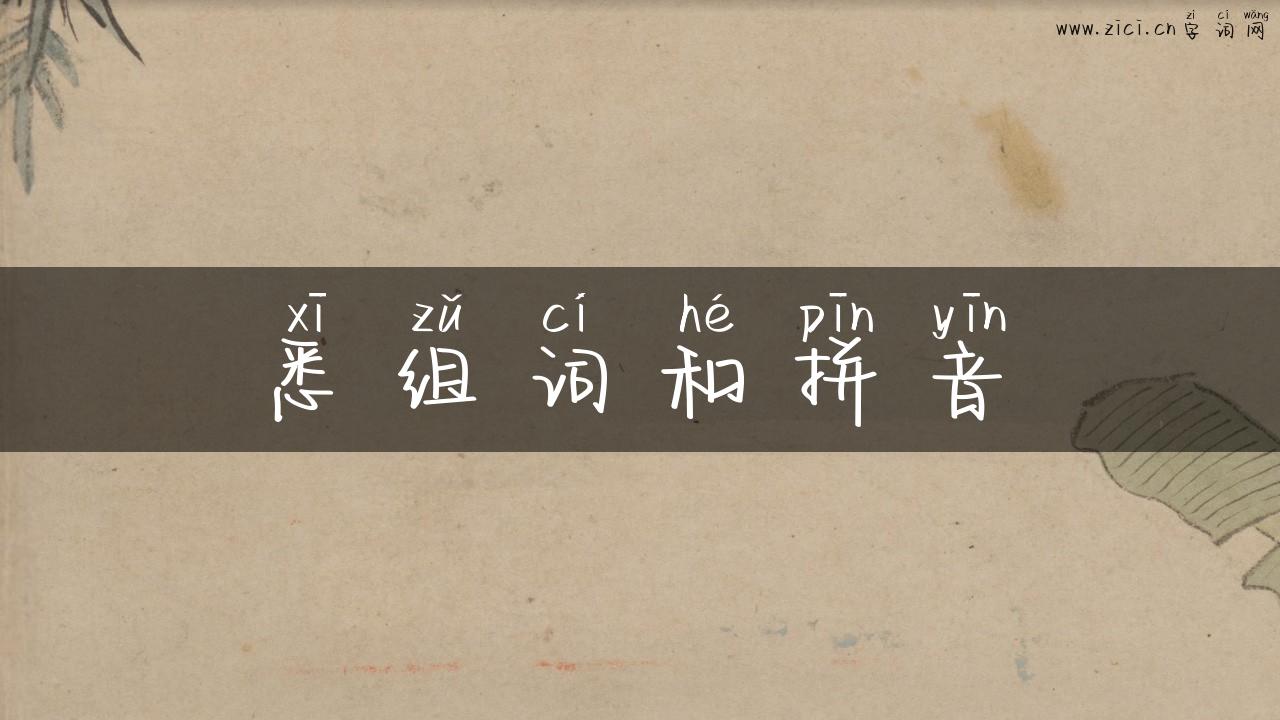 zì cí wǎng
www.zici.cn 字词网
xī zǔ cí hé pīn yīn
悉组词和拼音